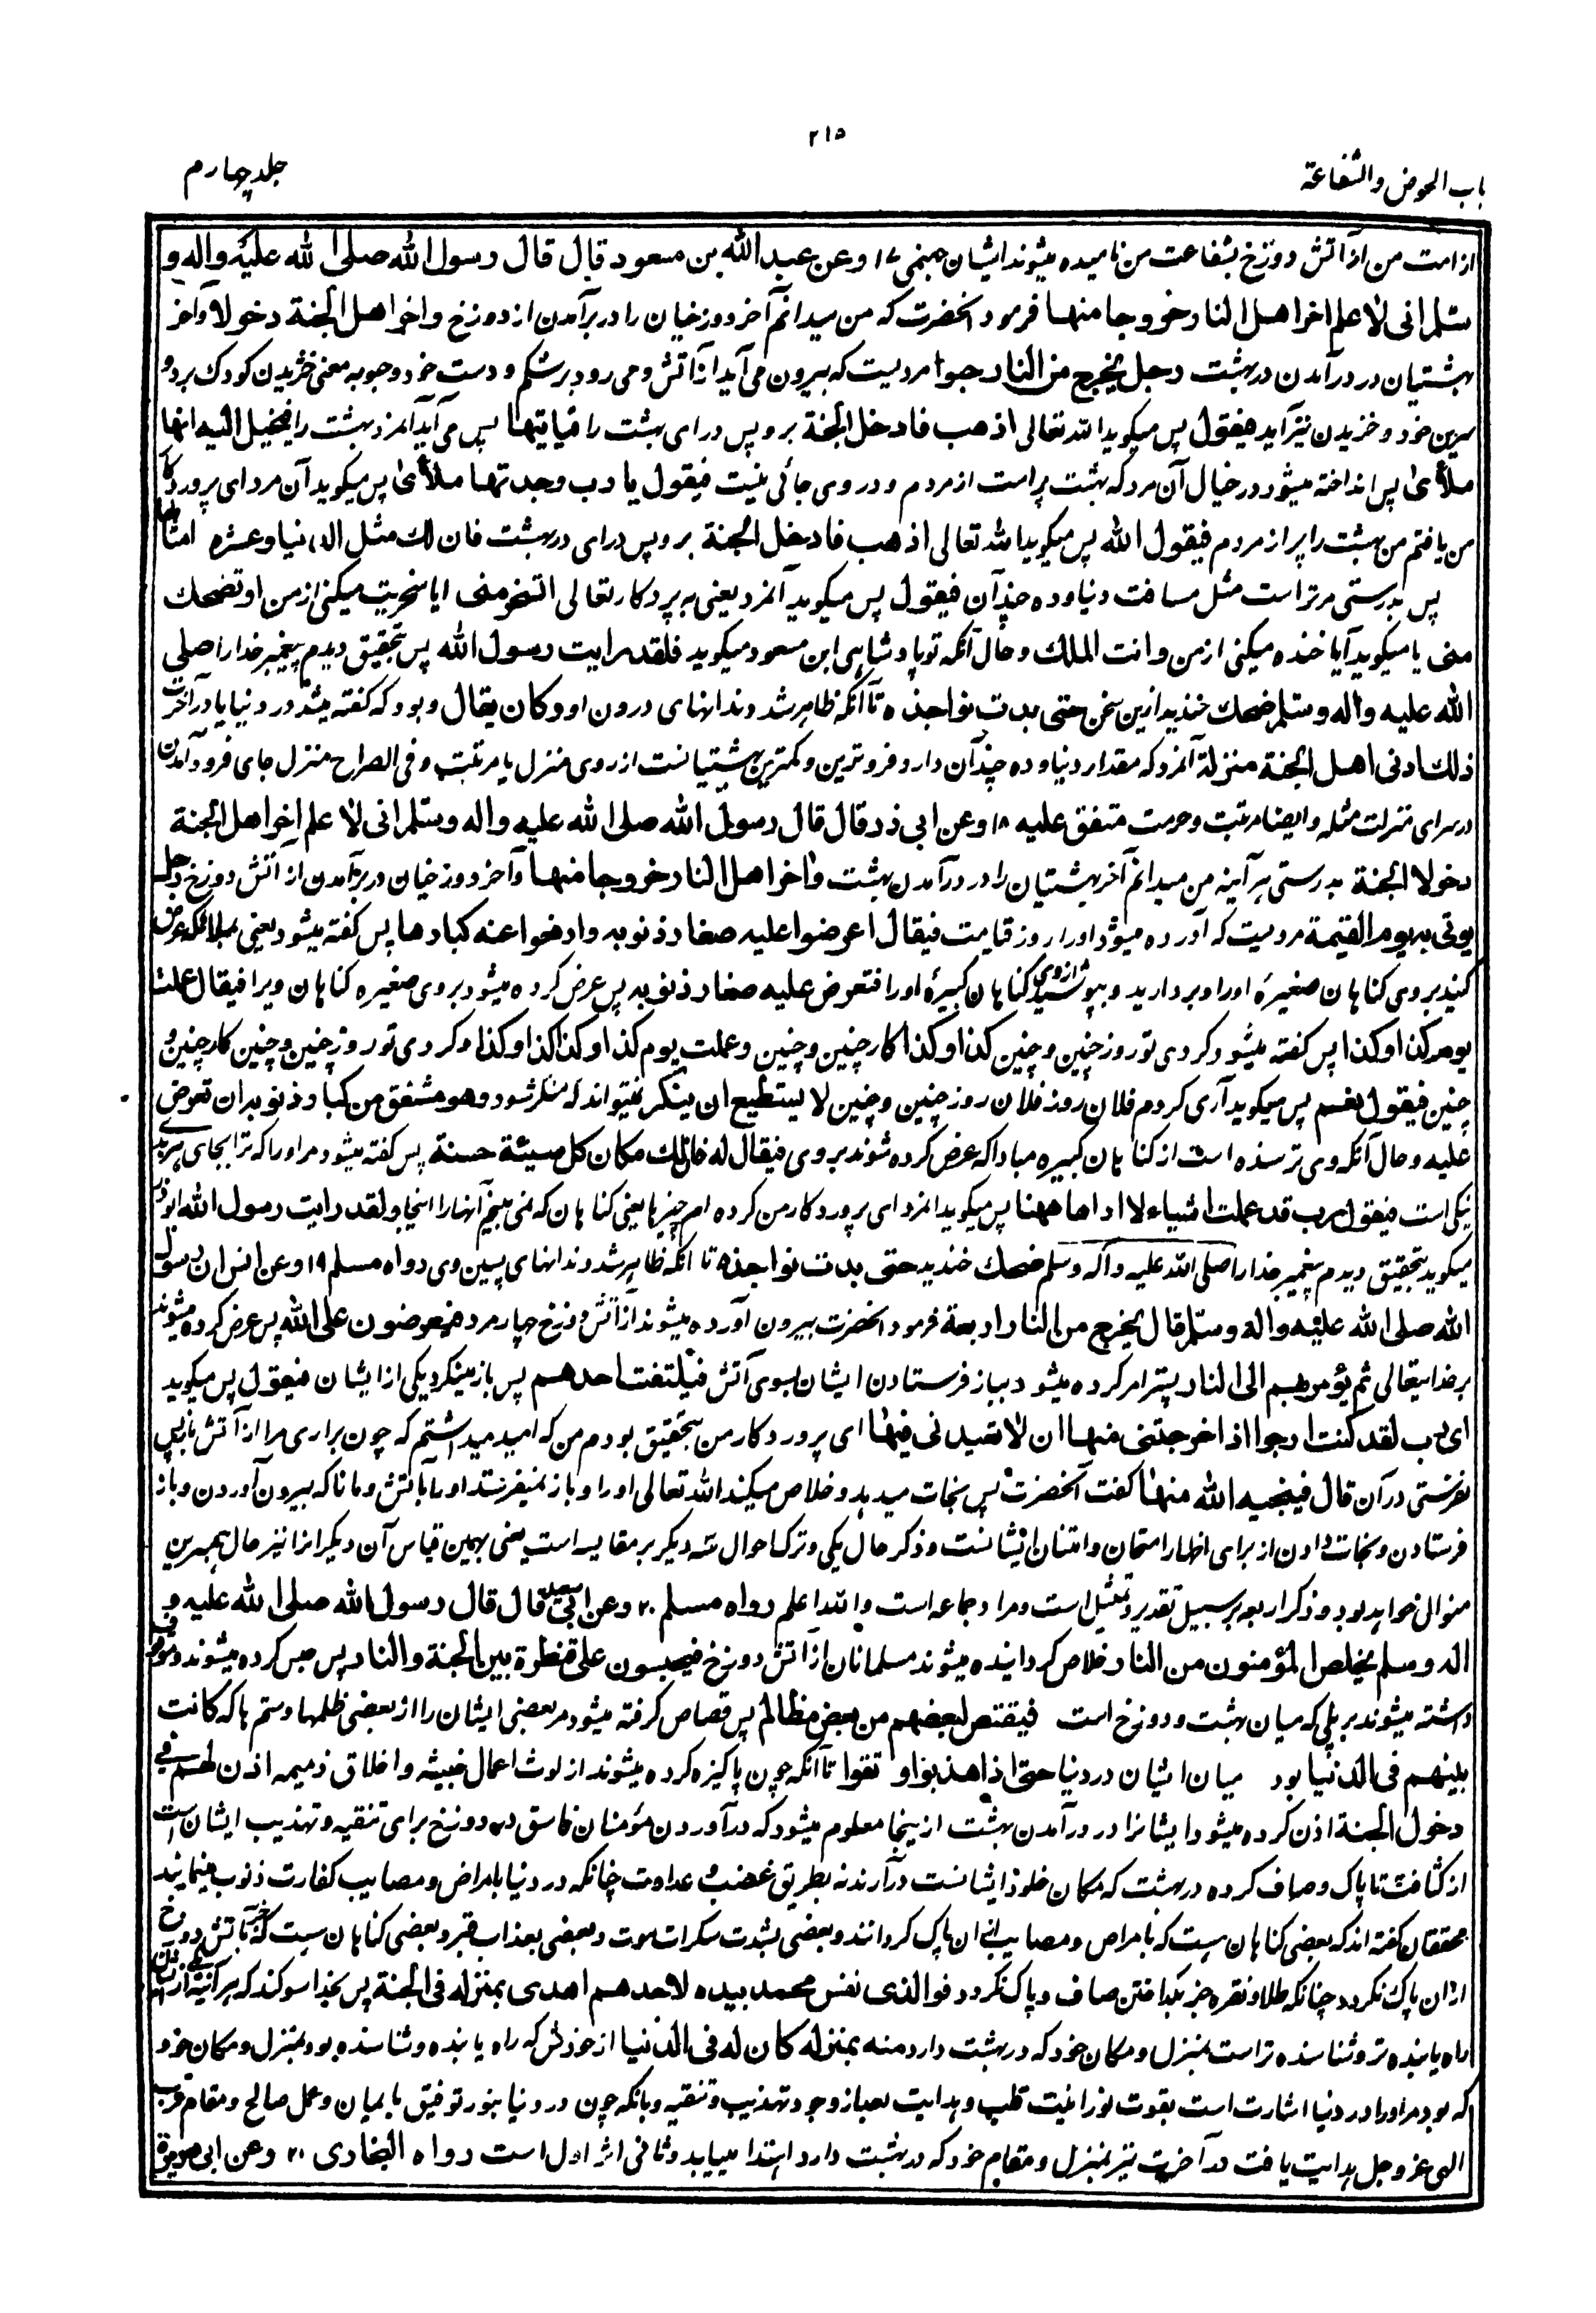 ۲۱۵
باب الحوض والشفاعة
جلد چهارم
از امت من از آتش دوزخ بشفاعت من نامیده میشوند ایشان جهنمی ۱۷ وعن عبد الله بن مسعود قال قال رسول الله صلی الله علیه واله و
سلم انی لاعلم اخر اهل النار خروجا منها فرمود آنحضرت که من میدانم آخر دوزخیان را در برآمدن از دوزخ واخر اهل الجنة دخولا وآخر
بهشتیان در درآمدن در بهشت رجل یخرج من النار حبوا مردیست که بیرون می آید از آتش و می رود بر شکم و دست خود وحبو به معنی خزیدن کودک بر دو
سرین خود و خزیدن نیز آید فیقول پس میگوید الله تعالی اذهب فادخل الجنة برو پس درای بهشت را فیاتیها پس می آید آنمرد بهشت را فیخیل الیه انها
ملأی پس انداخته میشود در خیال آن مرد که بهشت پر است از مردم و در وی جائی نیست فیقول یا رب وجدتها ملأی پس میگوید آن مرد ای پروردگار
من یافتم من بهشت را پر از مردم فیقول الله پس میگوید الله تعالی اذهب فادخل الجنة برو پس درای در بهشت فان لك مثل الدنیا وعشرة امثالها
پس بدرستی مر تراست مثل مسافت دنیا و ده چندآن فیقول پس میگوید آنمرد یعنی به پروردکار تعالی اتسخر منی ایا سخریت میکنی از من او تضحك
منی یا میگوید آیا خنده میکنی از من وانت الملك وحال آنکه تو پادشاهی ابن مسعود میگوید فلقد رایت رسول الله پس بتحقیق دیدم پیغمبر خدا را صلی
الله علیه واله وسلم ضحك خندید ازین سخن حتی بدت نواجذه تا آنکه ظاهر شد دندانهای درون او وکان یقال و بود که گفته میشد در دنیا یا در آخرت
ذلك ادنی اهل الجنة منزلة آنمرد که مقدار دنیا و ده چندآن دارد فروترین و کمترین بهشتیانست از روی منزل یا مرتبت و فی الصراح منزل جای فرود آمدن
در سرای منزلت مثله وایضا مرتبت وحرمت متفق علیه ۱۸ وعن ابی ذر قال قال رسول الله صلی الله علیه واله وسلم انی لاعلم اخر اهل الجنة
دخولا الجنة بدرستی هر آینه من میدانم آخر بهشتیان را در درآمدن بهشت واخر اهل النار خروجا منها وآخر دوزخیان در برآمدن از آتش دوزخ رجل
یوتی به یوم القیمة مردیست که آورده میشود او را روز قیامت فیقال اعرضوا علیه صغار ذنوبه وارفعوا عنه کبارها پس گفته میشود یعنی بملائکه عرض
کنید بر وی گناهان صغیرهٔ اورا و بردارید و بپوشید از وی گناهان کبیرهٔ اورا فتعرض علیه صغار ذنوبه پس عرض کرده میشود بر وی صغیره گناهان ویرا فیقال عملت
یوم کذا وکذا پس گفته میشود کردی تو روز چنین و چنین کذا وکذا کار چنین و چنین وعملت یوم کذا وکذا کذا وکذا و کردی تو روز چنین و چنین کار چنین و
چنین فیقول نعم پس میگوید آری کردم فلان روز فلان روز چنین و چنین لا یستطیع ان ینکر نمیتواند که منکر شود وهو مشفق من کبار ذنوبه ان تعرض
علیه وحال آنکه وی ترسنده است از گناهان کبیره مبادا که عرض کرده شوند بر وی فیقال له فان لك مکان کل سیئة حسنة پس گفته میشود مر اورا که ترا بجای هر بدی
نیکی است فیقول رب قد عملت اشیاء لا اراها ههنا پس میگوید آنمرد ای پروردکار من کرده ام چیزها یعنی گناهان که نمی بینم آنها را اینجا ولقد رایت رسول الله ابوذر
میگوید بتحقیق دیدم پیغمبر خدا را صلی الله علیه وآله وسلم ضحك خندید حتی بدت نواجذه تا آنکه ظاهر شد دندانهای پسین وی رواه مسلم ۱۹ وعن انس ان رسول
الله صلی الله علیه واله وسلم قال یخرج من النار اربعة فرمود آنحضرت بیرون آورده میشوند از آتش دوزخ چهار مرد فیعرضون علی الله پس عرض کرده میشوند
بر خدایتعالی ثم یؤمر بهم الی النار پستر امر کرده میشود بباز فرستادن ایشان بسوی آتش فیلتفت احدهم پس باز مینگرد یکی از ایشان فیقول پس میگوید
ای رب لقد کنت ارجوا اذ اخرجتنی منها ان لا تعیدنی فیها ای پروردکار من بتحقیق بودم من که امید میداشتم که چون براری مرا از آتش باز پس
نفرستی در آن قال فینجیه الله منها گفت آنحضرت پس نجات میدهد و خلاص میکند الله تعالی اورا و باز نمیفرستد اورا بآتش ومانا که بیرون آوردن و باز
فرستادن و نجات دادن از برای اظهار امتحان وامتنان ایشانست و ذکر حال یکی و ترک احوال سه دیکر بر مقایسه است یعنی بهمین قیاس آن دیکرانرا نیز حال بهمین
منوال خواهد بود و ذکر اربعه بر سبیل تقدیر و تمثیل است و مراد جماعه است والله اعلم رواه مسلم ۲۰ وعن ابی سعید قال قال رسول الله صلی الله علیه و
اله وسلم یخلص المؤمنون من النار خلاص گردانیده میشوند مسلمانان از آتش دوزخ فیحبسون علی قنطرة بین الجنة والنار پس حبس کرده میشوند و موقوف
داشته میشوند بر پلی که میان بهشت و دوزخ است فیقتص لبعضهم من بعض مظالم پس قصاص گرفته میشود مر بعضی ایشان را از بعضی ظلمها و ستم ها که کانت
بینهم فی الدنیا بود میان ایشان در دنیا حتی اذا هذبوا و نقوا تا آنکه چون پاکیزه کرده میشوند از لوث اعمال خبیثه و اخلاق ذمیمه اذن لهم فی
دخول الجنة اذن کرده میشود ایشانرا در درآمدن بهشت ازینجا معلوم میشود که درآوردن مؤمنان فاسق در دوزخ برای تنقیه و تهذیب ایشان است
از کثافت تا پاک و صاف کرده در بهشت که مکان خلود ایشانست درآرند نه بطریق غضب و عداوت چنانکه در دنیا بامراض و مصایب کفارت ذنوب مینمایند
محققان گفته اند که بعضی گناهان هست که بامراض و مصایب ازان پاک گردانند و بعضی بشدت سکرات موت و بعضی بعذاب قبر و بعضی گناهان هست که جز بآتش دوزخ
ازان پاک نگردد چنانکه طلا و نقره جز بگداختن صاف و پاک نگردد فوالذی نفس محمد بیده لاحدهم اهدی بمنزله فی الجنة پس بخدا سوگند که هر آئینه یکی از ایشان
راه یابنده تر و شناسنده تر است بمنزل و مکان خود که در بهشت دارد منه بمنزله کان له فی الدنیا از خودش که راه یابنده و شناسنده بود بمنزل و مکان خود
که بود مر اورا در دنیا اشارت است بقوت نورانیت قلب و هدایت بعد از وجود تهذیب و تنقیه و بانکه چون در دنیا بنور توفیق بایمان و عمل صالح و مقام قرب
الهی عز و جل هدایت یافت در آخرت نیز بمنزل و مقام خود که در بهشت دارد اهتدا مییابد و ثانی اثر اول است رواه البخاری ۲۱ وعن ابی هریرة